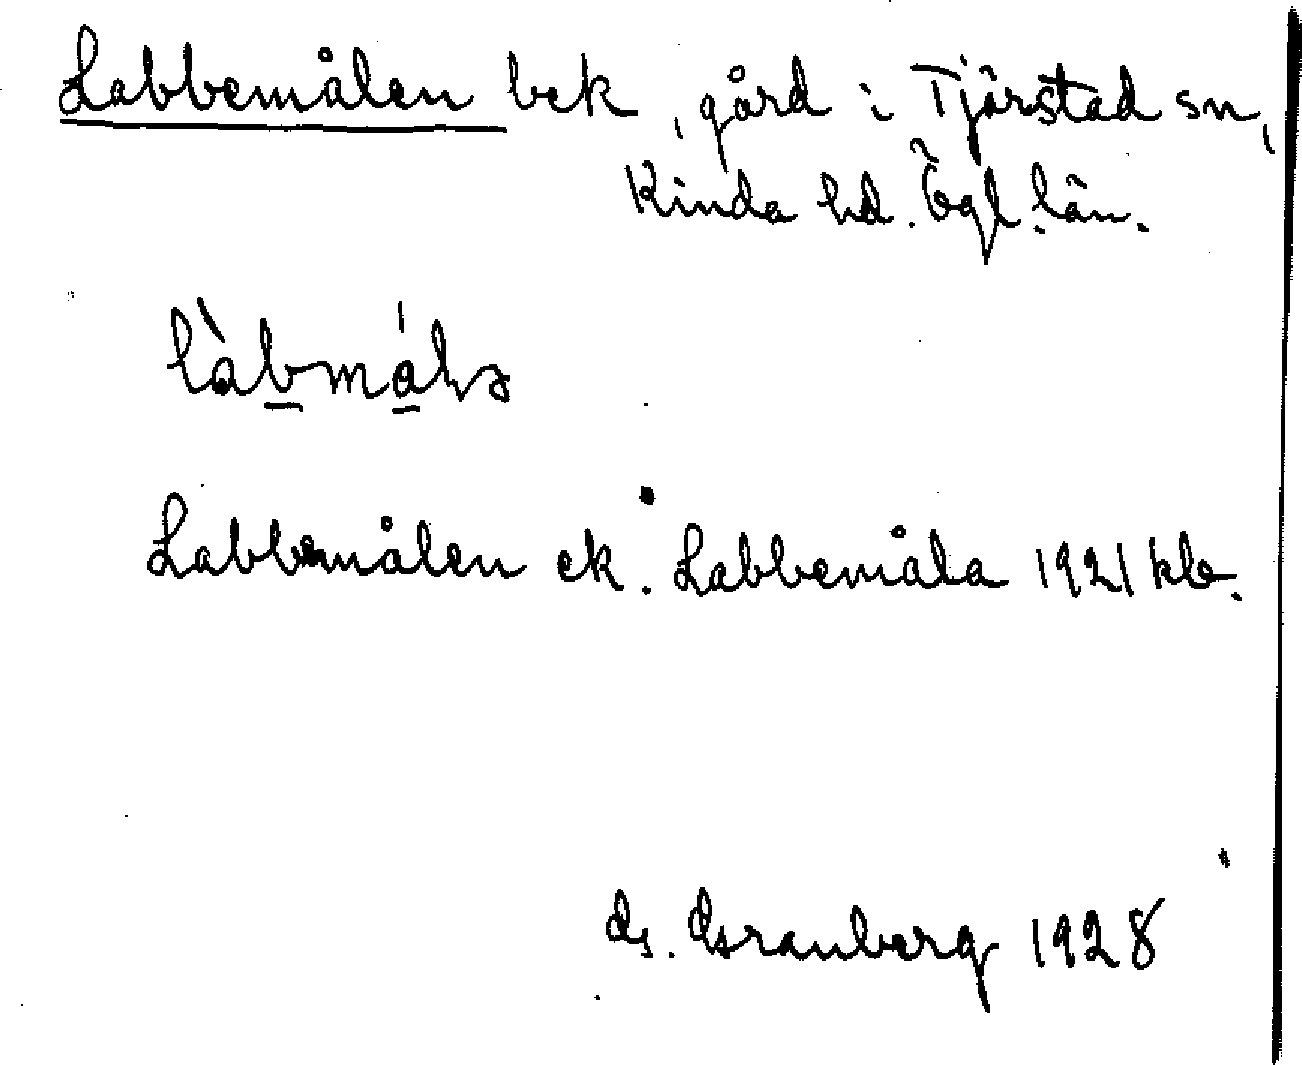 Labbemålen bek, gård i Tjärstad sn,
Kinda hd. Ögl. län.
làbmåla
Labbemålen ek. Labbemåla 1921 kb.
G. Granberg 1928